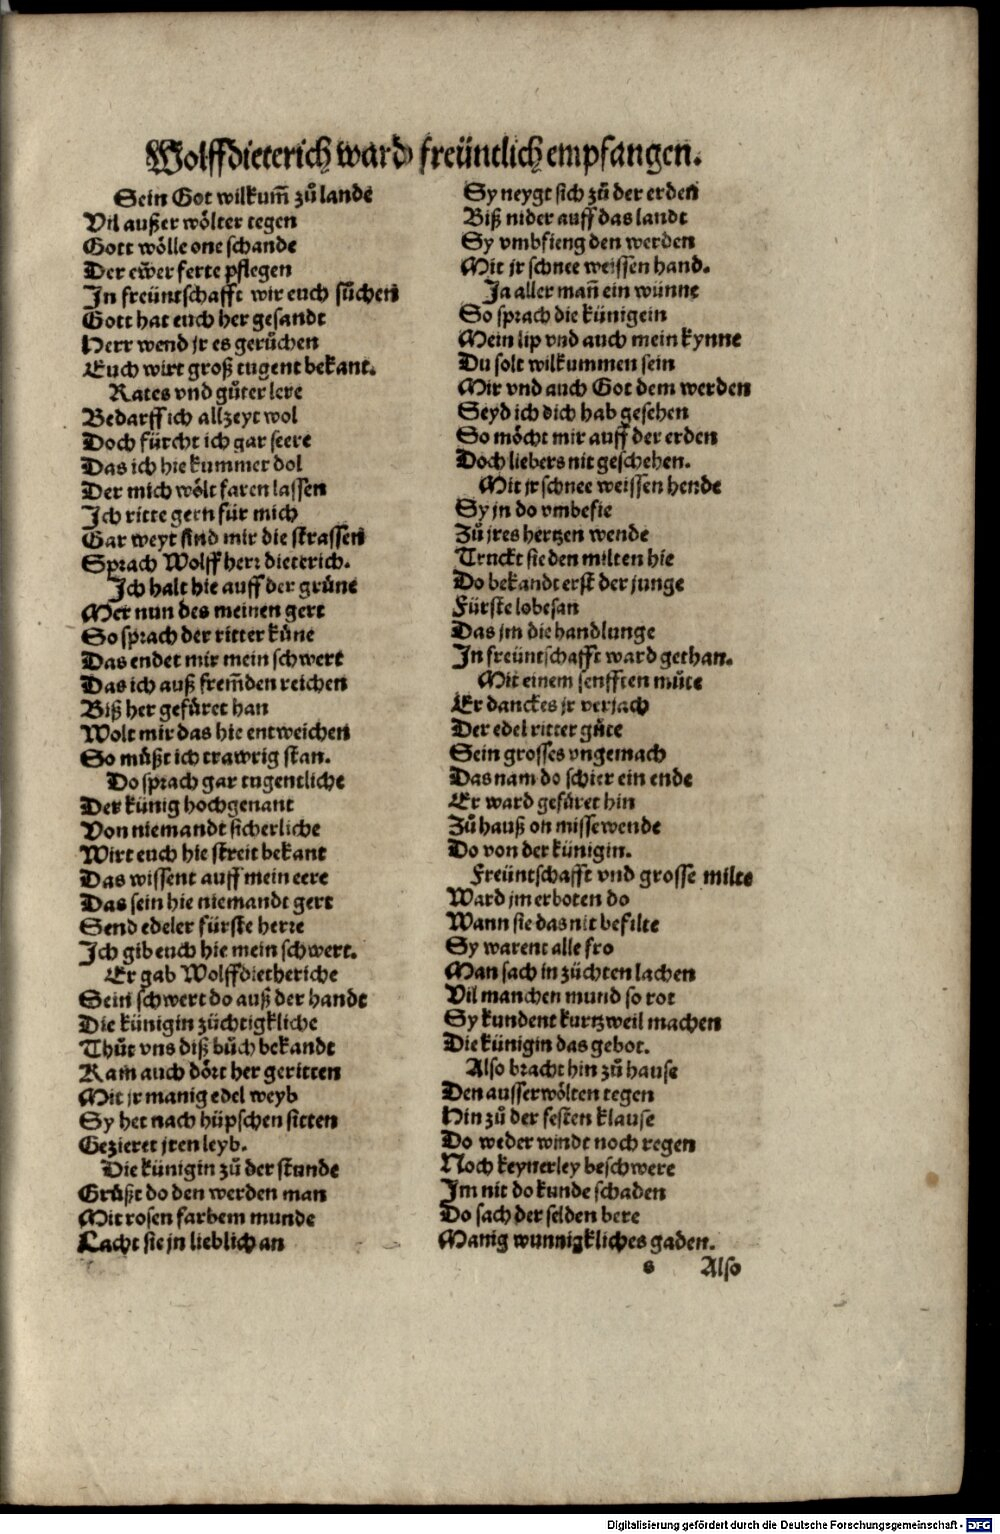 Wolffdieterich ward freüntlich empfangen.
Sein Got wilkum̃ zů lande
Vil außer wölter tegen
Gott wölle one schande
Der ew̃er ferte pflegen
In freüntschafft wir euch sůchen
Gott hat euch her gesandt
Herr wend jr es gerůchen
Euch wirt groß tugent bekant.
Rates vnd gůter lere
Bedarff ich allzeyt wol
Doch fürcht ich gar seere
Das ich hie kummer dol
Der mich wölt faren lassen
Ich ritte gern für mich
Gar weyt sind mir die strassen
Sprach Wolff herr dieterich.
Ich halt hie auff der grůne
Wer nun des meinen gert
So sprach der ritter kůne
Das endet mir mein schwert
Das ich auß frem̃den reichen
Biß her gefůret han
Wolt mir das hie entweichen
So můßt ich trawrig stan.
Do sprach gar tugentliche
Der künig hochgenant
Von niemandt sicherliche
Wirt euch hie streit bekant
Das wissent auff mein eere
Das sein hie niemandt gert
Send edeler fürste herre
Ich gib euch hie mein schwert.
Er gab Wolffdietheriche
Sein schwert do auß der handt
Die künigin züchtigkliche
Thůt vns diß bůch bekandt
Kam auch dört her geritten
Mit jr manig edel weyb
Sy het nach hüpschen sitten
Gezieret jren leyb.
Die künigin zů der stunde
Grůßt do den werden man
Mit rosen farbem munde
Lacht sie jn lieblich an
Sy neygt sich zů der erden
Biß nider auff das landt
Sy vmbfieng den werden
Mit jr schnee weissen hand.
Ja aller man̄ ein wünne
So sprach die künigein
Mein lip vnd auch mein kynne
Du solt wilkummen sein
Mir vnd auch Got dem werden
Seyd ich dich hab gesehen
So möcht mir auff der erden
Doch liebers nit geschehen.
Mit jr schnee weissen hende
Sy jn do vmbefie
Zů jres hertzen wende
Truckt sie den milten hie
Do bekandt erst der junge
Fürste lobesan
Das jm die handlunge
In freüntschafft ward gethan.
Mit einem senfften můte
Er danckes jr verjach
Der edel ritter gůte
Sein grosses vngemach
Das nam do schier ein ende
Er ward gefůret hin
Zů hauß on missewende
Do von der künigin.
Freüntschafft vnd grosse milte
Ward jm erboten do
Wann sie das nit befilte
Sy warent alle fro
Man sach in züchten lachen
Vil manchen mund so rot
Sy kundent kurtzweil machen
Die künigin das gebot.
Also bracht hin zů hause
Den ausserwölten tegen
Hin zů der festen klause
Do weder windt noch regen
Noch keynerley beschwere
Im nit do kunde schaden
Do sach der selden bere
Manig wunnigkliches gaden.
s Also
Digitalisierung gefördert durch die Deutsche Forschungsgemeinschaft - DFG